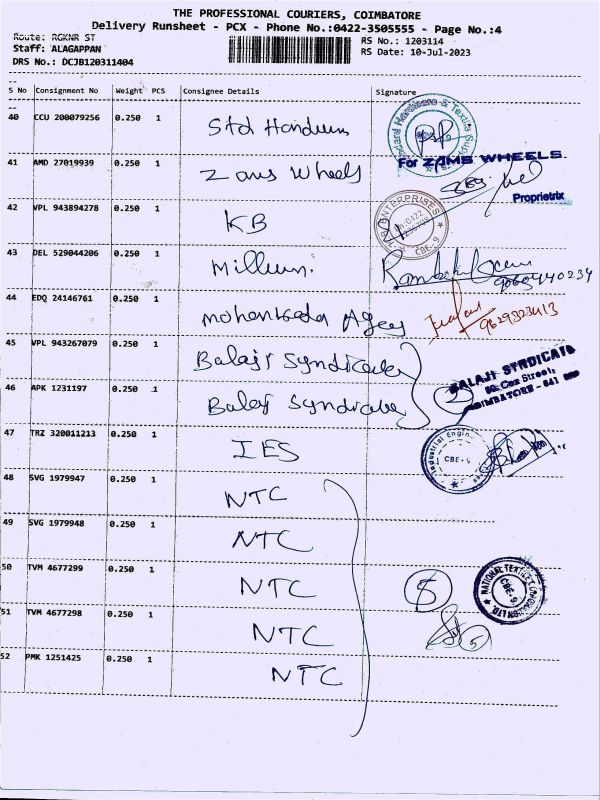 THE PROFESSIONAL COURIERS, COIMBATORE
Delivery Runsheet - PCX - Phone No.:0422-3505555 - Page No.:4
Route: RGKNR ST
RS No.: 1203114
Staff: ALAGAPPAN
RS Date: 10-Jul-2023
DRS No.: DCJB120311404
S No Consignment No Weight PCS Consignee Details Signature
40 CCU 200079256 0.250 1 Std
41 AMD 27019939 0.250 1 Zams Wheels
For ZAMS WHEELS
Proprietrix
42 VPL 943894278 0.250 1 KB
ENTERPRISES
CBE-9
43 DEL 529044206 0.250 1
44 EDQ 24146761 0.250 1
45 VPL 943267079 0.250 1 Balaji Syndicate
BALAJI SYNDICATE
Cox Street,
COIMBATORE - 641
46 APK 1231197 0.250 1 Balaji Syndicate
2
47 TRZ 320011213 0.250 1 IES
Industrial Engin
CBE-9
48 SVG 1979947 0.250 1 NTC
49 SVG 1979948 0.250 1 NTC
50 TVM 4677299 0.250 1 NTC
5
NATIONAL TEXTILE
CBE-9
51 TVM 4677298 0.250 1 NTC
5
52 PMK 1251425 0.250 1 NTC